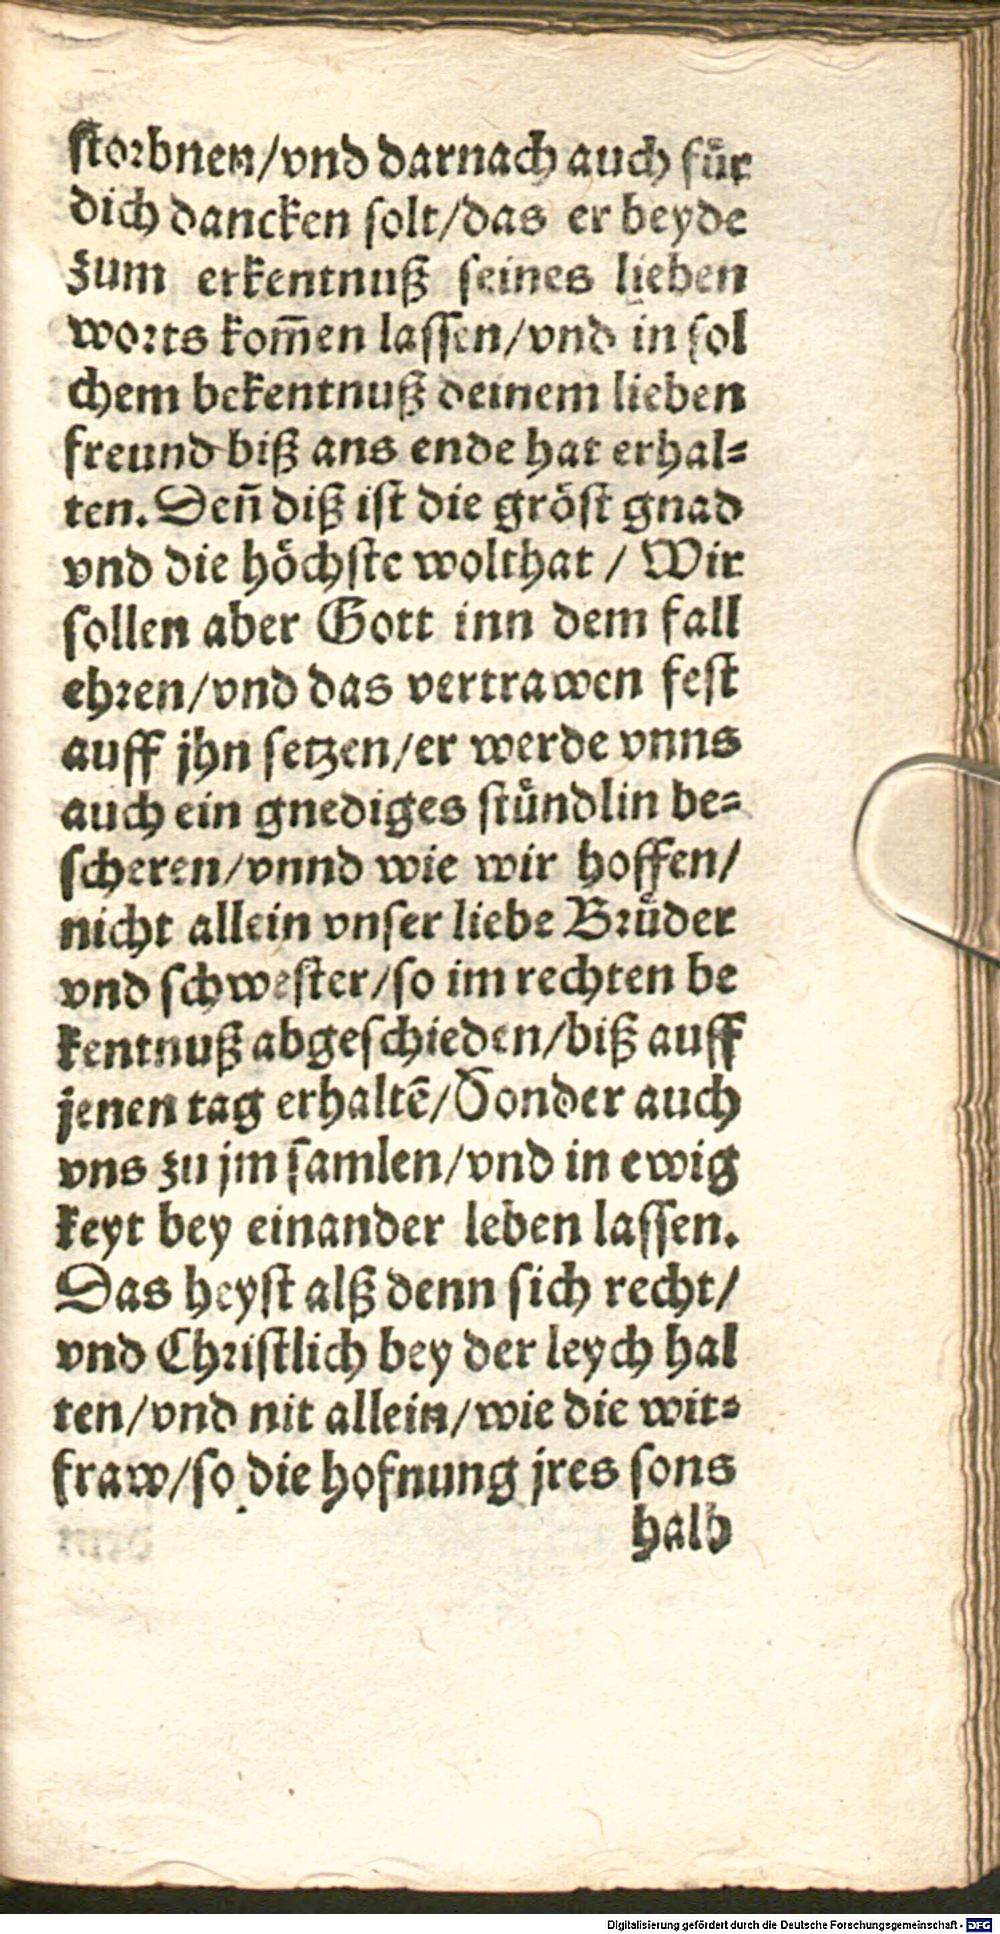 ſtorbnen/vnd darnach auch für
dich dancken ſolt/das er beyde
zum erkentnuß ſeines lieben
worts kom̄en laſſen/vnd in ſol
chem bekentnuß deinem lieben
freund biß ans ende hat erhal⸗
ten. Den̄ diß iſt die gröſt gnad
vnd die höchſte wolthat / Wir
ſollen aber Gott inn dem fall
ehren/vnd das vertrawen feſt
auff jhn ſetzen/er werde vnns
auch ein gnediges ſtündlin be⸗
ſcheren/vnnd wie wir hoffen/
nicht allein vnſer liebe Brüder
vnd ſchweſter/ſo im rechten be
kentnuß abgeſchieden/biß auff
jenen tag erhaltē/Sonder auch
vns zu jm ſamlen/vnd in ewig
keyt bey einander leben laſſen.
Das heyſt alß denn ſich recht/
vnd Chriſtlich bey der leych hal
ten/vnd nit allein/wie die wit⸗
fraw/ſo die hofnung jres ſons
halb
Digitalisierung gefördert durch die Deutsche Forschungsgemeinschaft - DFG